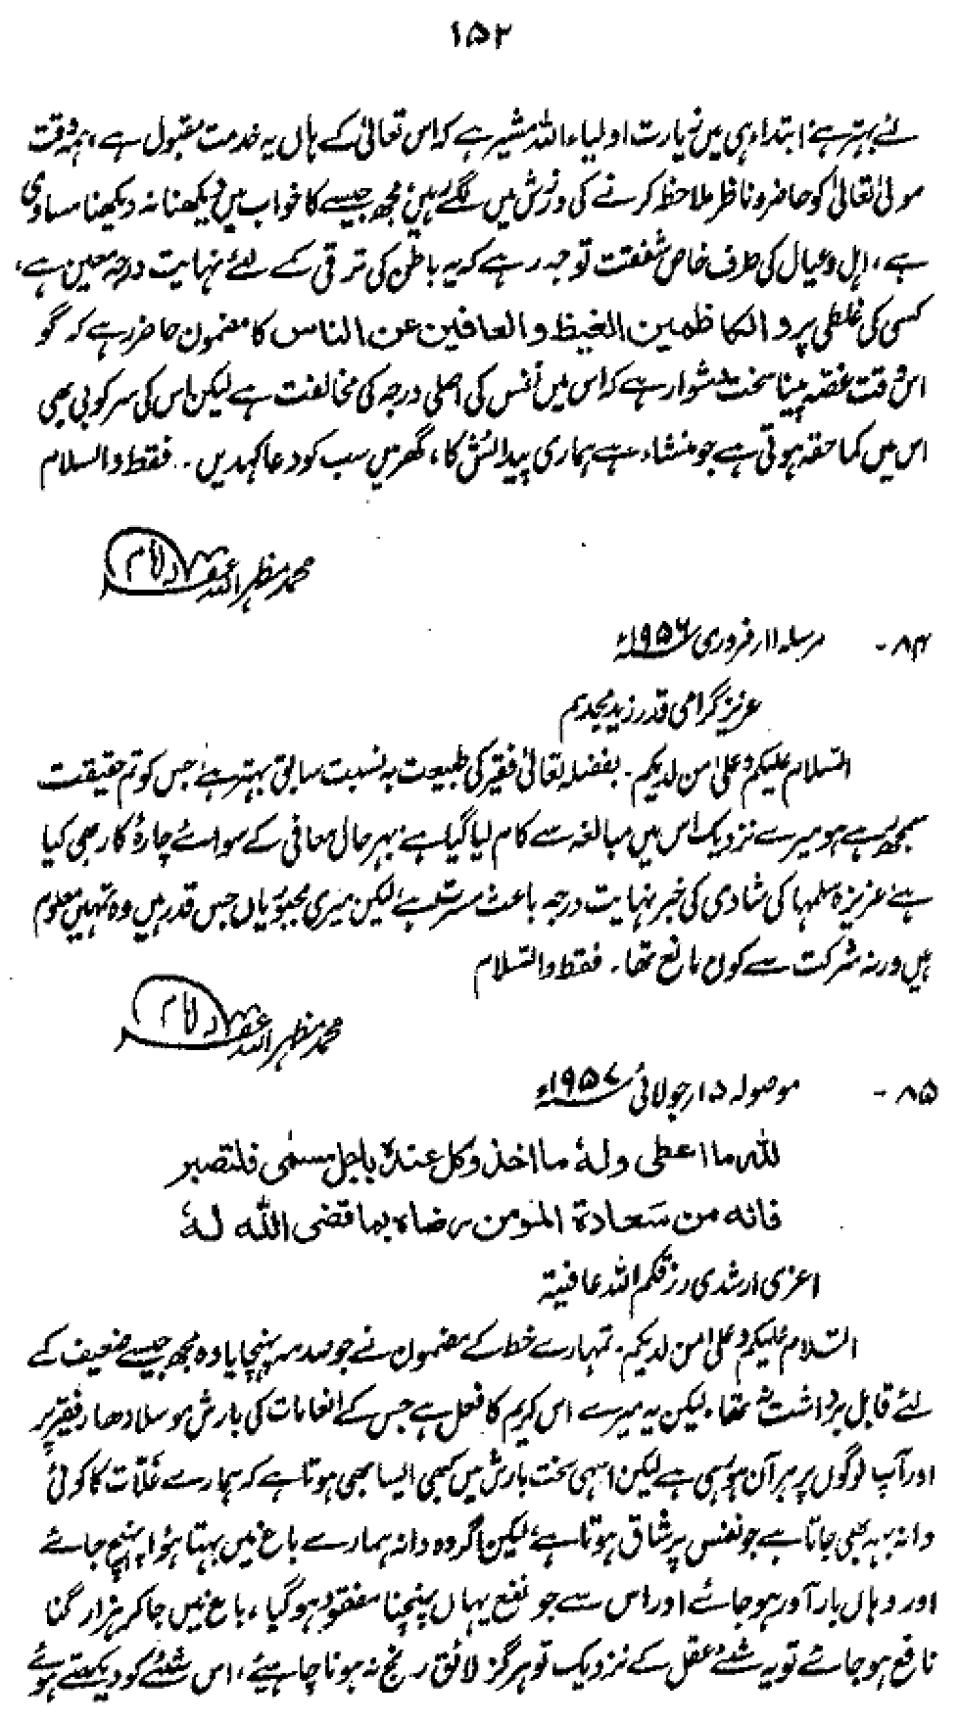 ۱۵۲
لئے بہتر ہے ابتداء ہی میں زیارت اولیاء اللہ مشیر ہے کہ اس تعالیٰ کے ہاں یہ خدمت مقبول ہے، ہمہ وقت
مولیٰ تعالیٰ کو حاضر و ناظر ملاحظہ کرنے کی ورزش میں لگے رہیں مجھ جیسے کا خواب میں دیکھنا نہ دیکھنا مساوی
ہے، اہل و عیال کی طرف خاص شفقت توجہ رہے کہ یہ باطن کی ترقی کے لئے نہایت درجہ معین ہے،
کسی کی غلطی پر والکاظمین الغیظ والعافین عن الناس کا مضمون حاضر رہے کہ گو
اس وقت غصہ پینا سخت دشوار ہے کہ اس میں نفس کی اصلی درجہ کی مخالفت ہے لیکن اس کی سرکوبی بھی
اس میں کماحقہ ہوتی ہے جو منشاء ہے ہماری پیدائش کا، گھر میں سب کو دعا کہدیں۔ فقط والسلام
محمد مظہر اللہ غفرلہ امام
۸۴- مرسلہ ۱۱ر فروری ۱۹۵۶ء
عزیز گرامی قدر زید مجدہم
السلام علیکم وعلیٰ من لدیکم۔ بفضلہ تعالیٰ فقیر کی طبیعت بہ نسبت سابق بہتر ہے جس کو تم حقیقت
سمجھ رہے ہو میرے نزدیک اس میں مبالغہ سے کام لیا گیا ہے بہر حال معافی کے سوائے چارۂ کار بھی کیا
ہے عزیزہ سلمہا کی شادی کی خبر نہایت درجہ باعث مسرت ہے لیکن میری مجبوریاں جس قدر ہیں وہ تمہیں معلوم
ہیں ورنہ شرکت سے کون مانع تھا۔ فقط والسلام
محمد مظہر اللہ غفرلہ امام
۸۵- موصولہ ۱۵ر جولائی ۱۹۵۷ء
للہ ما اعطی ولہ ما اخذ وکل عندہ باجل مسمی فلتصبر
فانه من سعادة المومن رضاہ بما قضی اللہ لہ
اعزی ارشدی رزقکم اللہ عافیۃ
السلام علیکم وعلیٰ من لدیکم۔ تمہارے خط کے مضمون نے جو صدمہ پہنچایا وہ مجھ جیسے ضعیف کے
لئے قابل برداشت نہ تھا، لیکن یہ میرے اس کریم کا فعل ہے جس کے انعامات کی بارش موسلادھار فقیر پر
اور آپ لوگوں پر ہر آن ہو رہی ہے لیکن ایسی سخت بارش میں کبھی ایسا بھی ہوتا ہے کہ ہمارے غلّات کا کوئی
دانہ بہہ بھی جاتا ہے جو نفس پر شاق ہوتا ہے لیکن اگر وہ دانہ ہمارے باغ میں بہتا ہوا پہنچ جائے
اور وہاں بارآور ہو جائے اور اس سے جو نفع یہاں پہنچنا مفقود ہو گیا، باغ میں جا کر ہزار گنا
نافع ہو جائے تو یہ شئے عقل کے نزدیک تو ہرگز لائق رنج نہ ہونا چاہیئے، اس شئے کو دیکھتے ہوئے